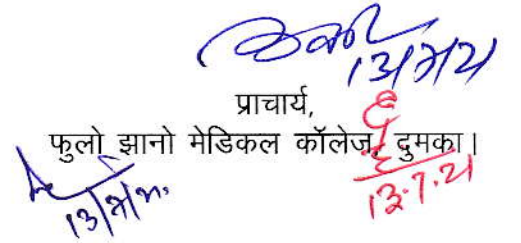 13/7/21
प्राचार्य,
फुलो झानो मेडिकल कॉलेज, दुमका।
13.7.21